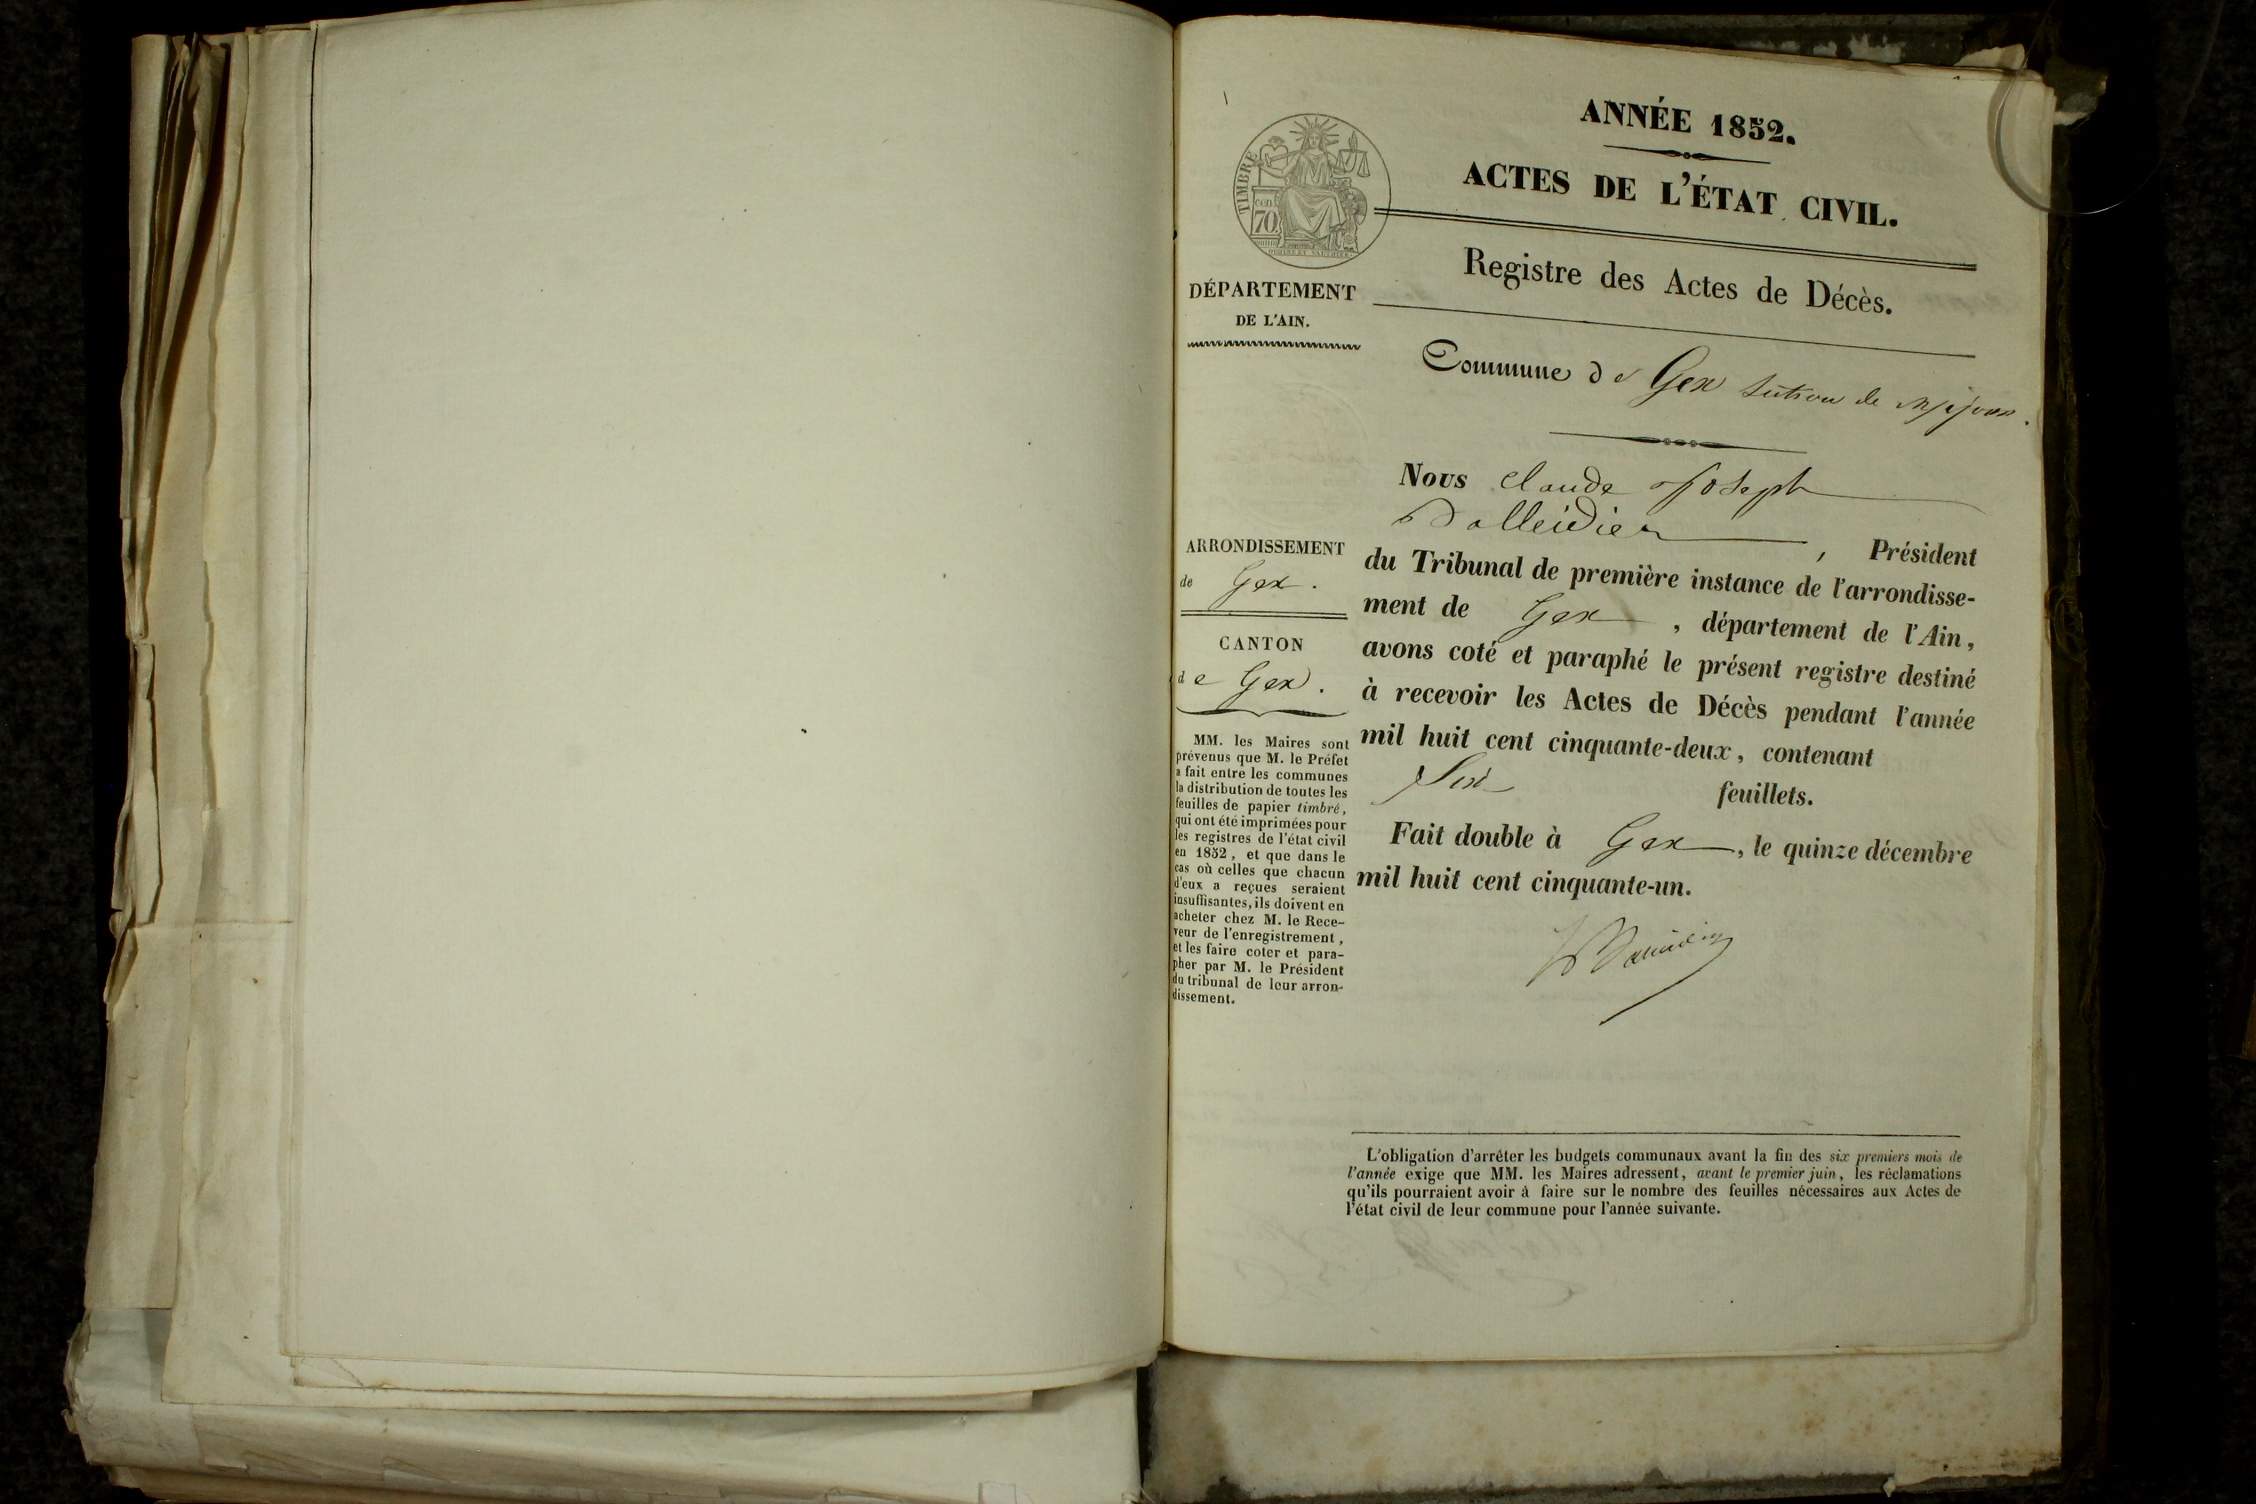 ANNÉE 1852.
ACTES DE L'ÉTAT CIVIL.
Registre des Actes de Décès.
TIMBRE
70
DÉPARTEMENT
DE L'AIN.
Commune de Gex section de Mijoux.
Nous Claude Joseph
Balleidier, Président
du Tribunal de première instance de l'arrondisse-
ment de Gex, département de l'Ain,
avons coté et paraphé le présent registre destiné
à recevoir les Actes de Décès pendant l'année
mil huit cent cinquante-deux, contenant
Six feuillets.
Fait double à Gex, le quinze décembre
mil huit cent cinquante-un.
ARRONDISSEMENT
de Gex.
CANTON
de Gex.
MM. les Maires sont
prévenus que M. le Préfet
a fait entre les communes
la distribution de toutes les
feuilles de papier timbré,
qui ont été imprimées pour
les registres de l'état civil
en 1852, et que dans le
cas où celles que chacun
d'eux a reçues seraient
insuffisantes, ils doivent en
acheter chez M. le Rece-
veur de l'enregistrement,
et les faire coter et para-
pher par M. le Président
du tribunal de leur arron-
dissement.
L'obligation d'arrêter les budgets communaux avant la fin des six premiers mois de
l'année exige que MM. les Maires adressent, avant le premier juin, les réclamations
qu'ils pourraient avoir à faire sur le nombre des feuilles nécessaires aux Actes de
l'état civil de leur commune pour l'année suivante.